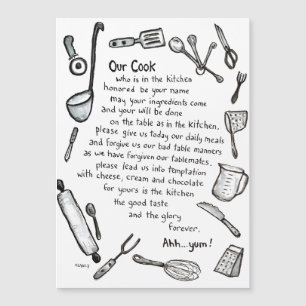 Our Cook
who is in the kitchen
honored be your name
may your ingredients come
and your will be done
on the table as in the kitchen.
please give us today our daily meals
and forgive us our bad table manners
as we have forgiven our tablemates.
please lead us into temptation
with cheese, cream and chocolate
for yours is the kitchen
the good taste
and the glory
forever.
Ahh...yum!